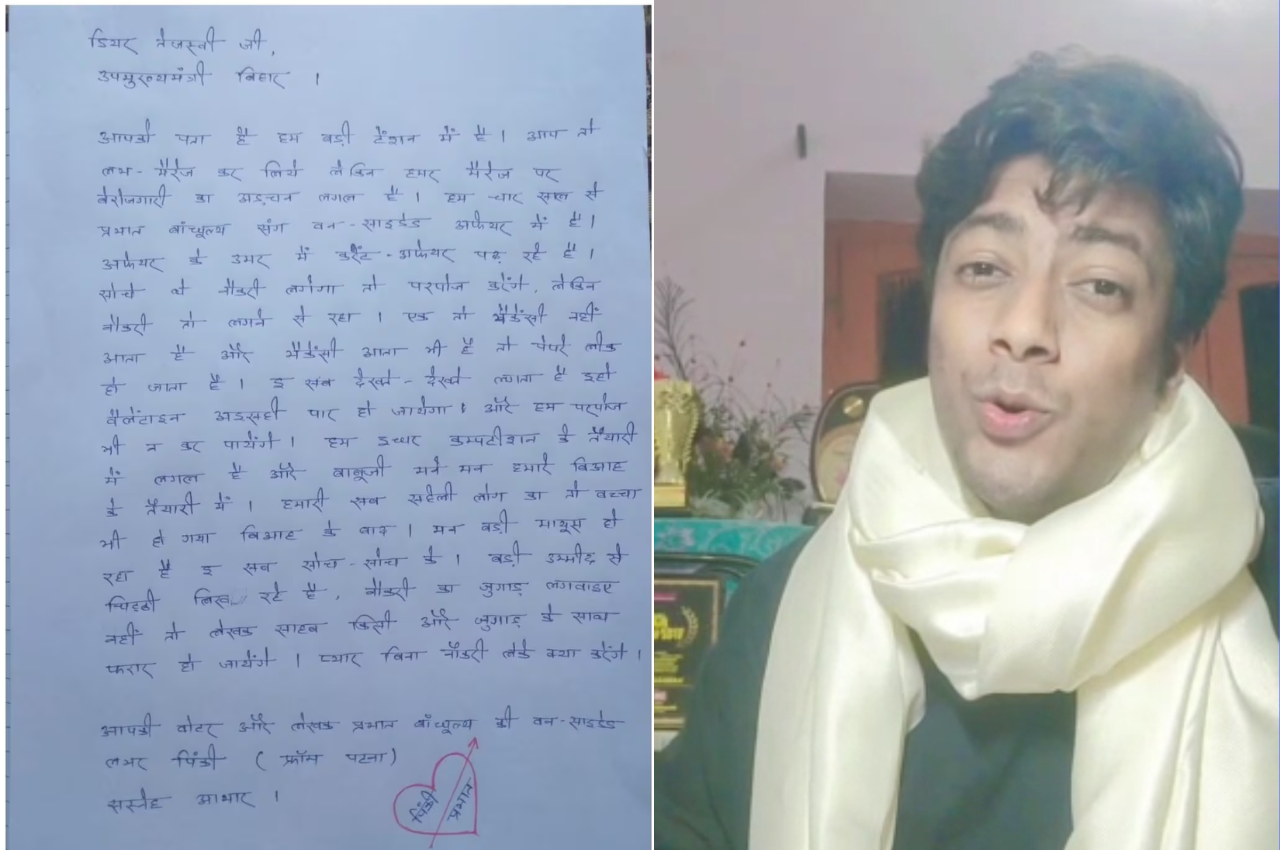 डियर तेजस्वी जी,
उपमुख्यमंत्री बिहार ।
आपको पता है हम बड़ी टेंशन में है । आप तो
लभ-मैरेज कर लिये लेकिन हमर मैरेज पर
बेरोजगारी का अड़चन लगल है । हम चार साल से
प्रभात बाँधुल्य संग वन-साइडेड अफेयर में है ।
अफेयर के उमर में करेंट-अफेयर पढ़ रहे है ।
सोचे थे नौकरी लगेगा तो परपोज करेंगे, लेकिन
नौकरी तो लगने से रहा । एक तो भैकेंसी नहीं
आता है और भैकेंसी आता भी है तो पेपरे लीक
हो जाता है । इ सब देखते-देखते लगता है इहो
वैलेंटाइन अइसही पार हो जायेगा । और हम परपोज
भी न कर पायेंगे । हम इधर कम्पटीशन के तैयारी
में लगल है और बाबूजी मने मन हमारे बिआह
के तैयारी में । हमारी सब सहेली लोग का तो बच्चा
भी हो गया बिआह के बाद । मन बड़ी मायूस हो
रहा है इ सब सोच-सोच के । बड़ी उम्मीद से
चिट्ठी लिख रहे है, नौकरी का जुगाड़ लगवाइए
नहीं तो लेखक साहब किसी और जुगाड़ के साथ
फरार हो जायेंगे । प्यार बिना नौकरी लेके क्या करेंगे ।
आपकी वोटर और लेखक प्रभात बाँधुल्य की वन-साइडेड
लभर पिंकी ( फ्रॉम पटना )
सस्नेह आभार ।
पिंकी प्रभात